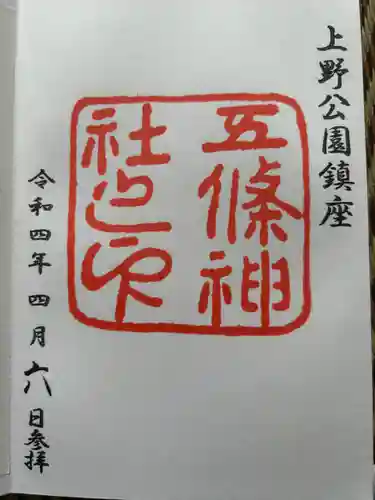 上野公園鎮座
五條神
社之印
令和四年四月六日参拝